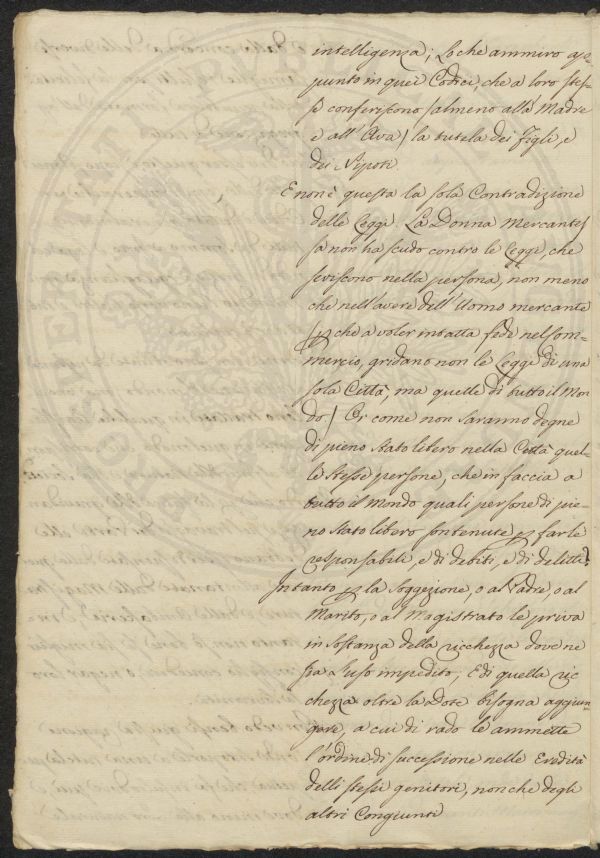 intelligenza; Loche ammiro ap-
punto in quei Codici, che a loro stes-
si conferiscono /almeno alla Madre
e all' Ava/ la tutela dei Figli, e
dei Nipoti.
E non è questa la sola Contradizione
delle Leggi. La Donna Mercantes-
sa non ha scudo contro le Leggi, che
seviscono nella persona, non meno
che nell'avere dell'Uomo mercante
/ perche a voler intatta fede nel Com-
mercio, gridano non le Leggi di una
sola Città, ma quelle di tutto il Mon-
do/ Or come non saranno degne
di pieno stato libero nella Città quel-
le stesse persone, che in faccia a
tutto il Mondo quali persone di pie-
no stato libero sontenute per farle
responsabili, e di debiti, e di delitti?
Intanto per la soggezione, o al Padre, o al
Marito, o al Magistrato le priva
in sostanza della ricchezza dove ne
sia l'uso impedito; E di quella ric
chezza oltre la Dote bisogna aggiun-
gere, a cui di rado le ammette
l'ordine di successione nelle Eredità
delli stessi genitori, non che degli
altri Congiunti